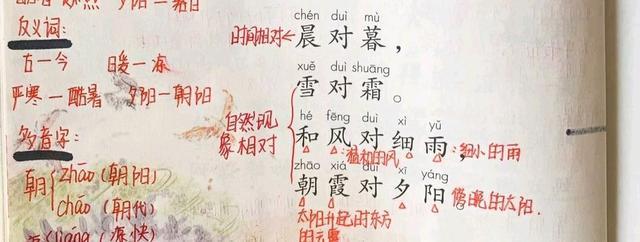 夕阳一
反义词:
古一今 暖一冻
严寒一酷暑 夕阳一朝阳
多音字:
朝 zhāo(朝阳)
cháo(朝代)
liáng(凉快)
chén duì mù
时间相对←晨对暮，
xuě duì shuāng
雪对霜。
自然现象相对
hé fēng duì xì yǔ
和风对细雨，
温和的风 细小的雨
zhāo xiá duì xī yáng
朝霞对夕阳
太阳升起时东方的云霞
傍晚的太阳.